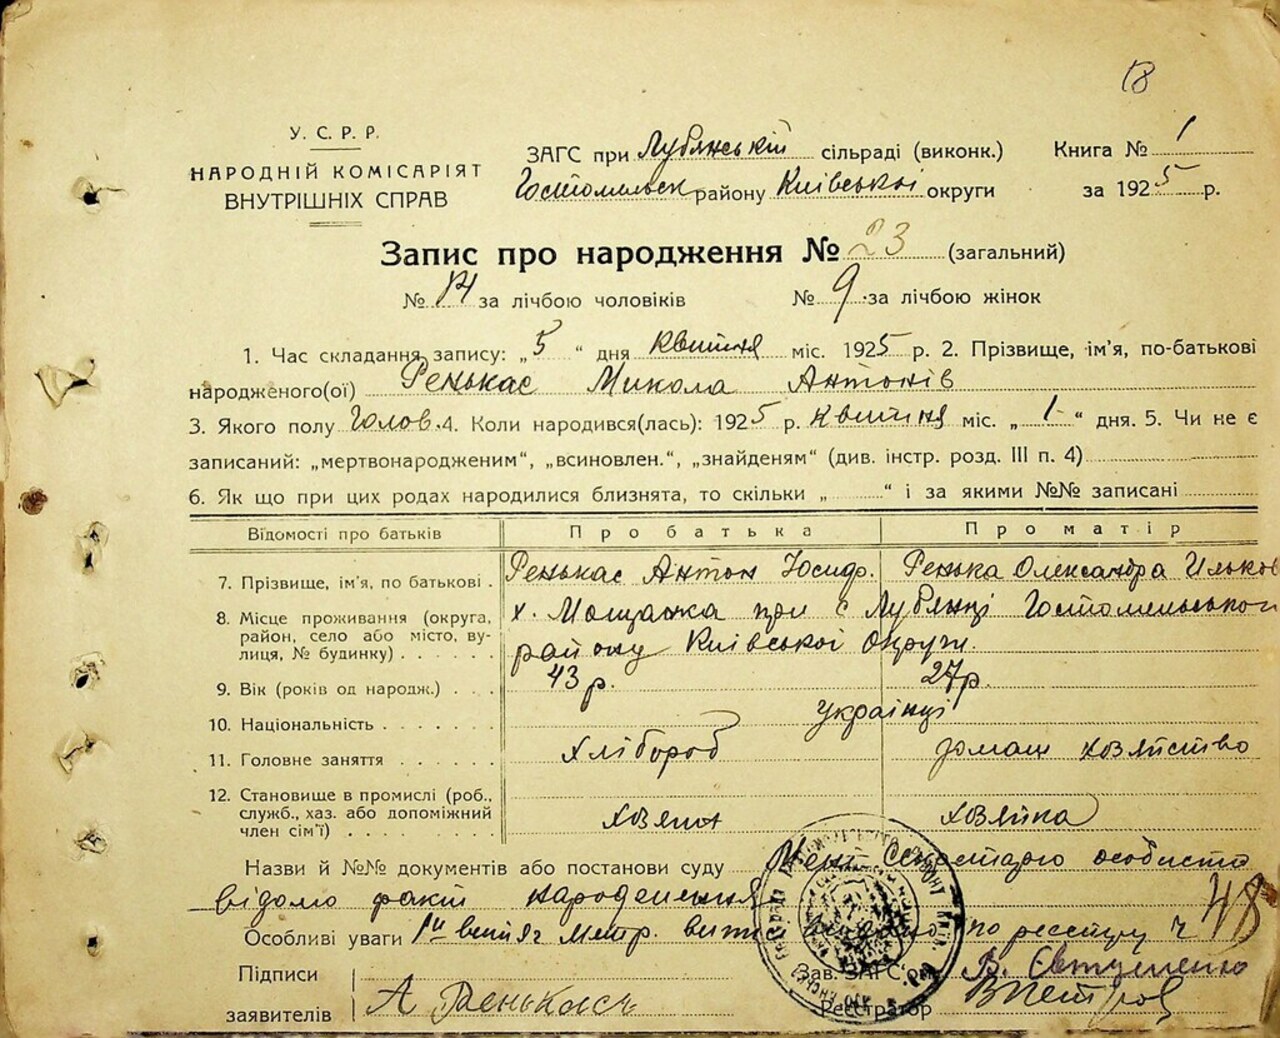 18
У. С. Р. Р.
НАРОДНІЙ КОМІСАРІЯТ
ВНУТРІШНІХ СПРАВ
ЗАГС при Лубянській сільраді (виконк.) Книга № 1
Гостомельськ району Київської округи за 1925 р.
Запис про народження № 23 (загальний)
№ 14 за лічбою чоловіків № 9 за лічбою жінок
1. Час складання запису: „5“ дня квітня міс. 1925 р. 2. Прізвище, ім'я, по-батькові
народженого(ої) Ренькас Микола Антонів
3. Якого полу Голов. 4. Коли народився(лась): 1925 р. квітня міс. „1“ дня. 5. Чи не є
записаний: „мертвонародженим“, „всиновлен.“, „знайденям“ (див. інстр. розд. III п. 4)
6. Як що при цих родах народилися близнята, то скільки „ “ і за якими №№ записані
Відомості про батьків Про батька Про матір
7. Прізвище, ім'я, по батькові . Ренькас Антон Йосиф. Ренька Олександра Ильков
8. Місце проживання (округа, район, село або місто, вулиця, № будинку) х. Мощанка при с Лубянці Гостомельського
району Київської Округи.
9. Вік (років од народж.) 43 р. 27 р.
10. Національність українці
11. Головне заняття хлібороб домаш хозяйство
12. Становище в промислі (роб., служб., хаз. або допоміжний член сім'ї) хозяин хозяйка
Назви й №№ документів або постанови суду Мені Секретарю особисто
відомо факт народження
Особливі уваги витяг Метр. видано по реєстру ч 48
Підписи Зав. ЗАГС'ом В. Євтушенко
заявителів А Ренькась Реєстратор ВПетров